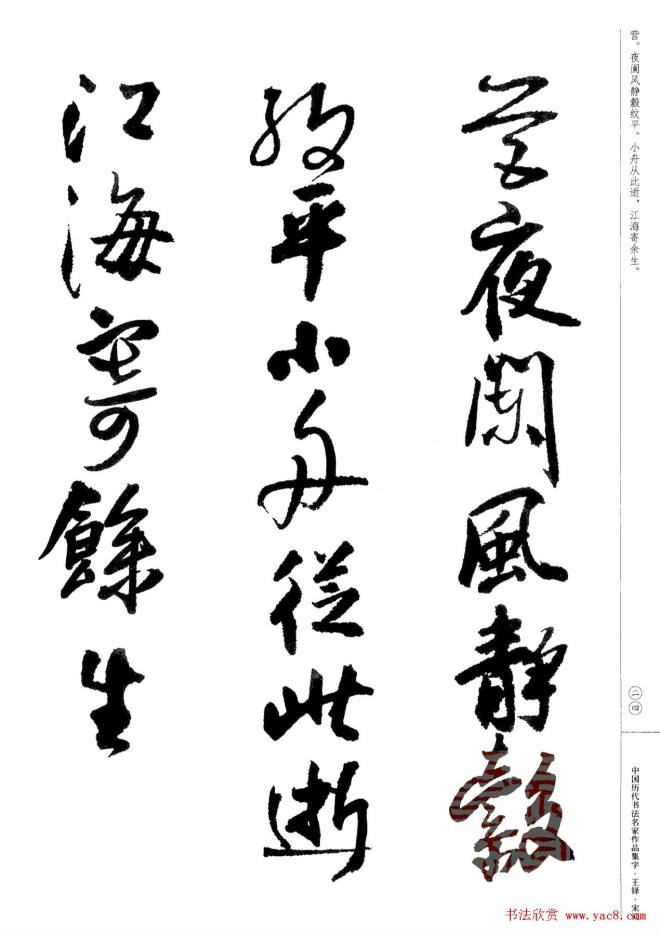 营。夜阑风静縠纹平。小舟从此逝，江海寄余生。
營夜闌風靜縠
紋平小舟從此逝
江海寄餘生
二四
中国历代书法名家作品集字·王铎·宋词
书法欣赏 www.yac8.com